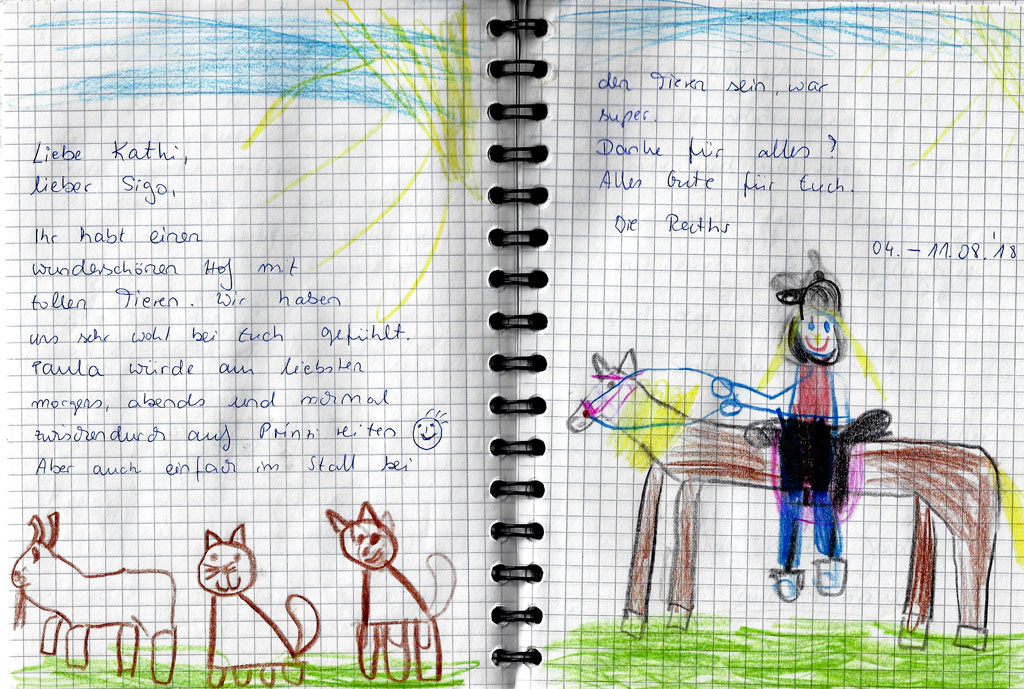 Liebe Kathi,
lieber Sigo,
Ihr habt einen
wunderschönen Hof mit
tollen Tieren. Wir haben
uns sehr wohl bei Euch gefühlt.
Paula würde am liebsten
morgens, abends und normal
zwischendurch auf Prinzi reiten
Aber auch einfach im Stall bei
den Tieren sein, war
super.
Danke für alles?
Alles Gute für Euch.
Die Reiths
04. – 11.08.'18